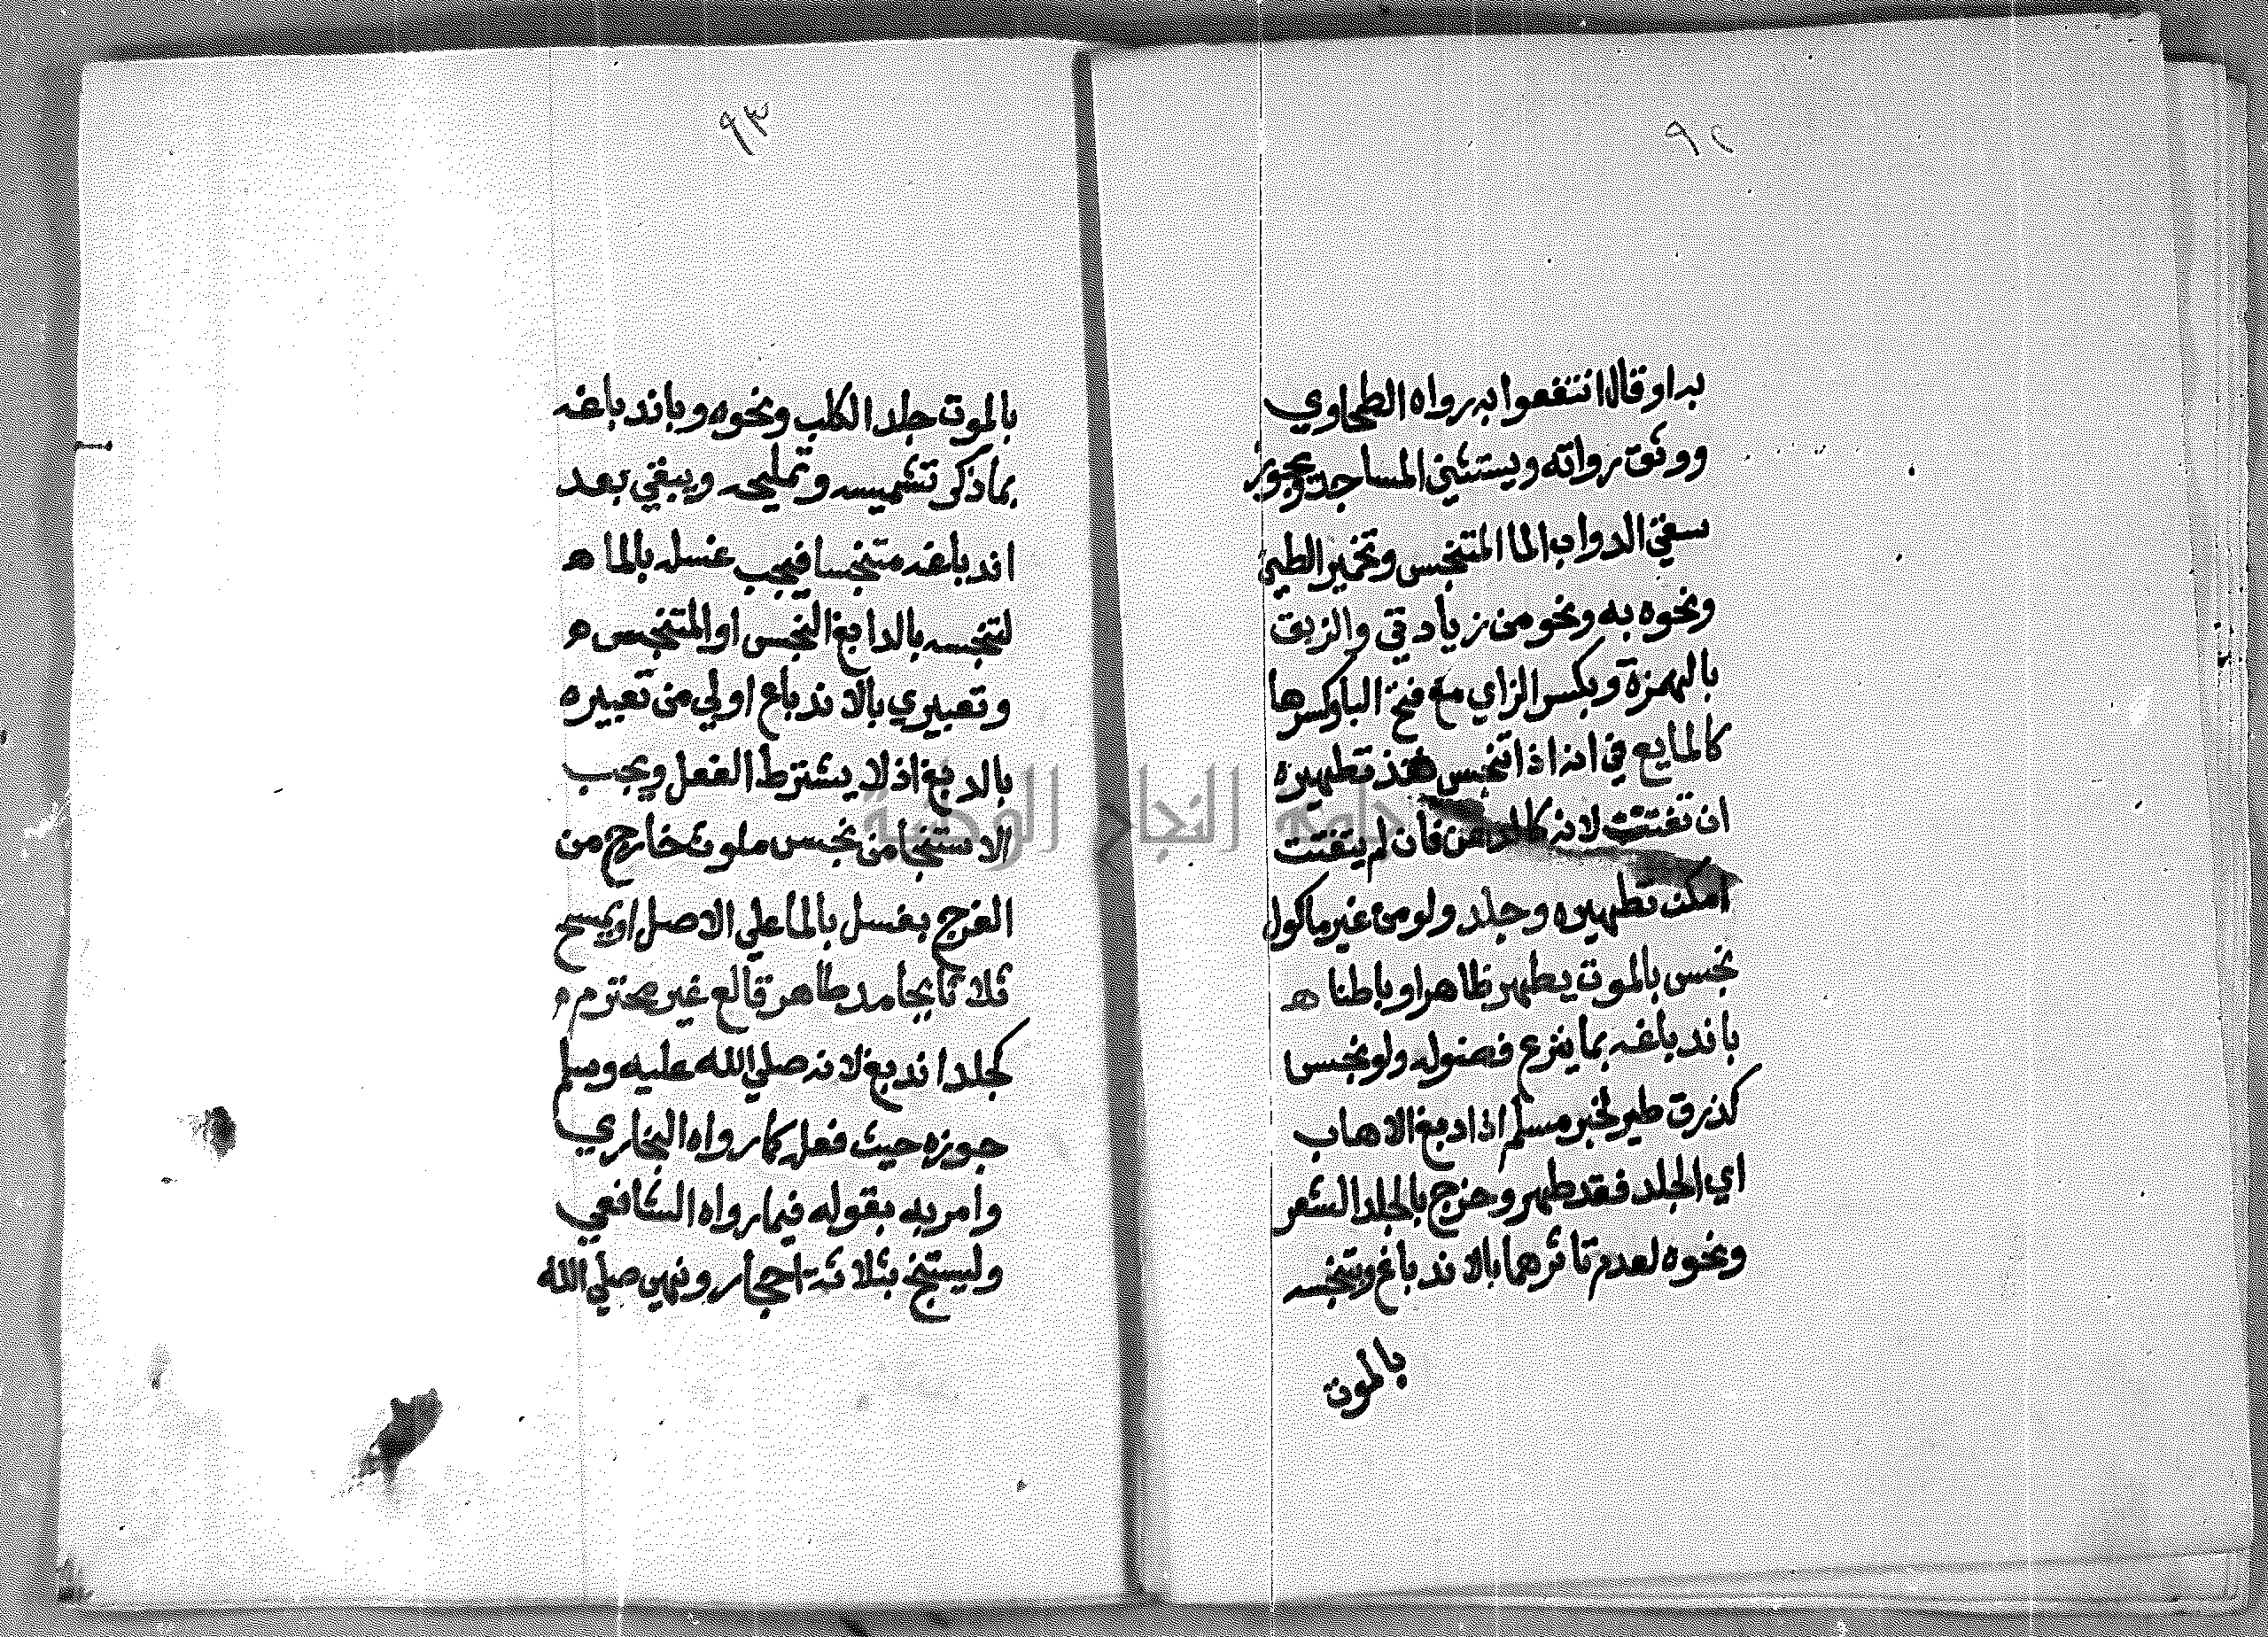 ٩٢
به او قال انتفعوا به رواه الطحاوي
ووثق رواته ويستثني المساجد ويجوز
سقي الدواب الما المتنجس وتخمير الطين
ونحوه به ونحو من زيادتي والزيبق
بالهمزة وبكسر الزاي مع فتح البا وكسرها
كالمايع في انه اذا تنجس تعذر تطهيره
ان تفتت لانه كالدهن فان لم يتفتت
امكن تطهيره وجلد ولو من غير ماكول
نجس بالموت يطهر ظاهرا وباطنا ه
باندباغه بما ينزع فضوله ولو نجس
كذرق طير لخبر مسلم اذا دبغ الاهاب
اي الجلد فقد طهر وخرج بالجلد الشعر
ونحوه لعدم تاثرهما بالاندباغ وبتنجسه
بالموت
٩٣
بالموت جلد الكلب ونحوه وباندباغه
بما ذكر تشميسه وتمليحه ويبقي بعد
اندباغه متنجسا فيجب غسله بالما ه
لتنجسه بالدابغ النجس او المتنجس ه
وتعبيري بالاندباغ اولي من تعبيره
بالدبغ اذ لا يشترط الفعل ويجب
الاستنجا من نجس ملوث خارج من
الفرج بغسل بالما علي الاصل او بمسح
ثلاثا بجامد طاهر قالع غير محترم م
كجلد اندبغ لانه صلي الله عليه وسلم
جوزه حيث فعله كما رواه البخاري
وامر به بقوله فيما رواه الشافعي
وليستنج بثلاثة احجار ونهي صلي الله
جامعة النجاح الوطنية